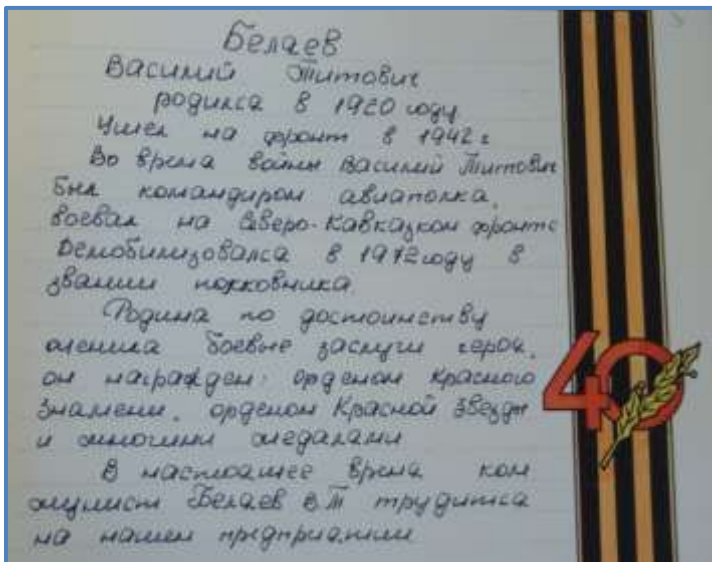 Белаев
Василий Титович
родился в 1920 году
Ушел на фронт в 1942 г
Во время войны Василий Титович
был командиром авиаполка,
воевал на Северо-Кавказком фронте
Демобилизовался в 1972 году в
звании полковника.
Родина по достоинству
оценила боевые заслуги героя,
он награжден: орденом Красного
Знамени, орденом Красной Звезды
и многими медалями
В настоящее время ком
мунист Белаев В Т трудится
на нашем предприятии
40